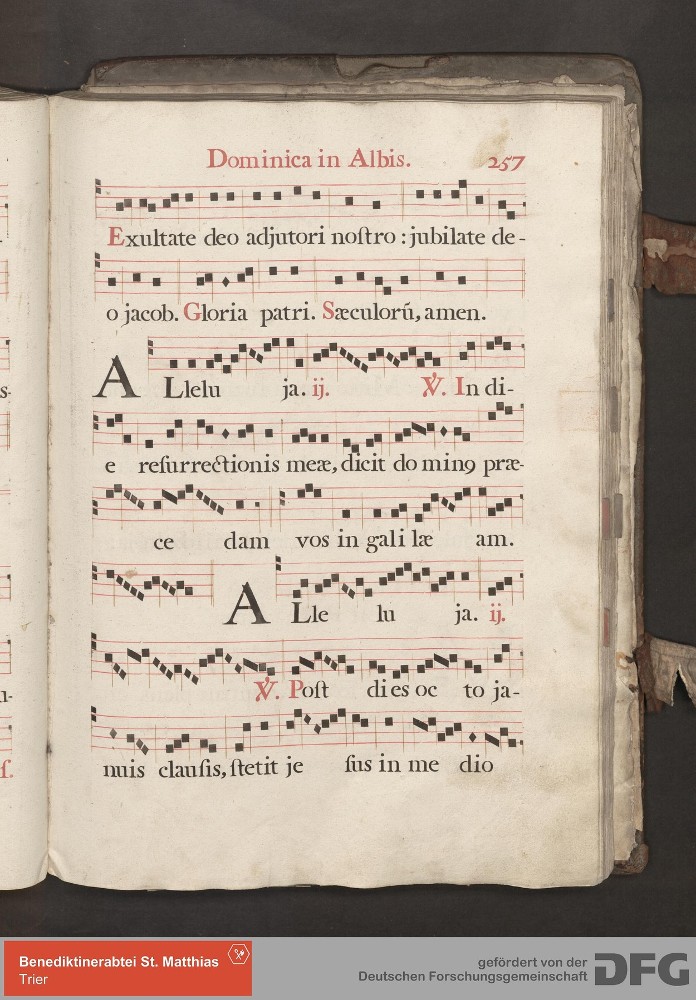 Dominica in Albis. 257
Exultate deo adjutori noſtro : jubilate de-
o jacob. Gloria patri. Sæculorũ, amen.
ALlelu ja. ij. ℣. In di-
e reſurrectionis meæ, dicit do minꝰ præ-
ce dam vos in gali læ am.
ALle lu ja. ij.
℣. Poſt dies oc to ja-
nuis clauſis, ſtetit je ſus in me dio
s-
i-
ſ.
Benediktinerabtei St. Matthias
Trier
gefördert von der
Deutschen Forschungsgemeinschaft
DFG